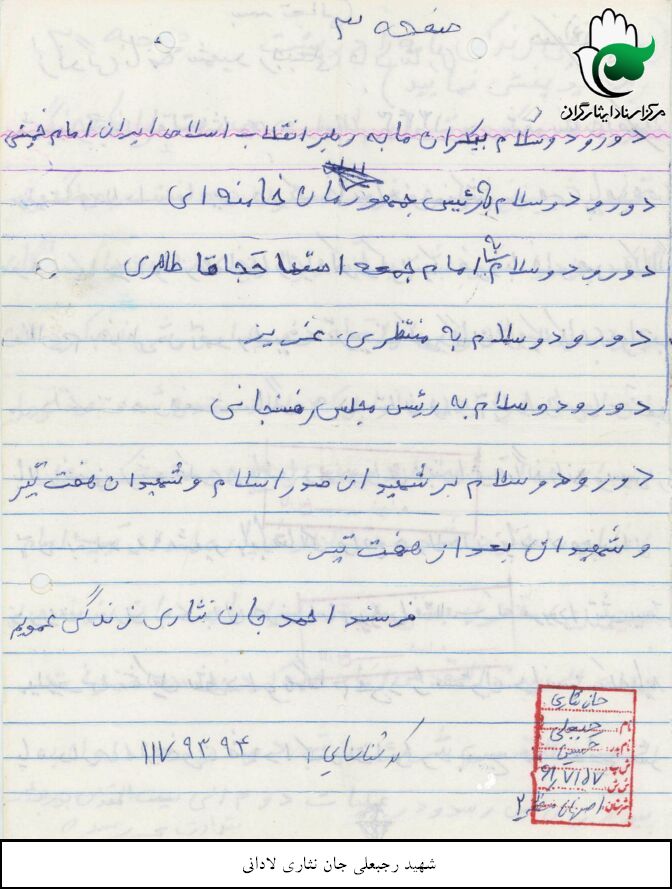 صفحه ۳
مرکز اسناد ایثارگران
دورود و سلام بیکران ما به رهبر انقلاب اسلامی ایران امام خمینی
دورود و سلام به رئیس جمهورمان خامنه ای
دورود و سلام به امام جمعه اصفها حجاقا طاهری
دورود و سلام به منتظری عزیز
دورود و سلام به رئیس مجلس رفسنجانی
دورود و سلام بر شهیدان صدر اسلام و شهیدان هفت تیر
و شهیدان بعد از هفت تیر
فرستد احمد جان نثاری زندگی عمویم
کد شناسایی: ۱۱۷۹۳۹۴
جان نثاری
نام:
نام پدر: حسین
ش پ: ۹۱۰۷۱۵۷
ش ش:
شهرستان: اصفهان منطقه ۲
شهید رجبعلی جان نثاری لادانی